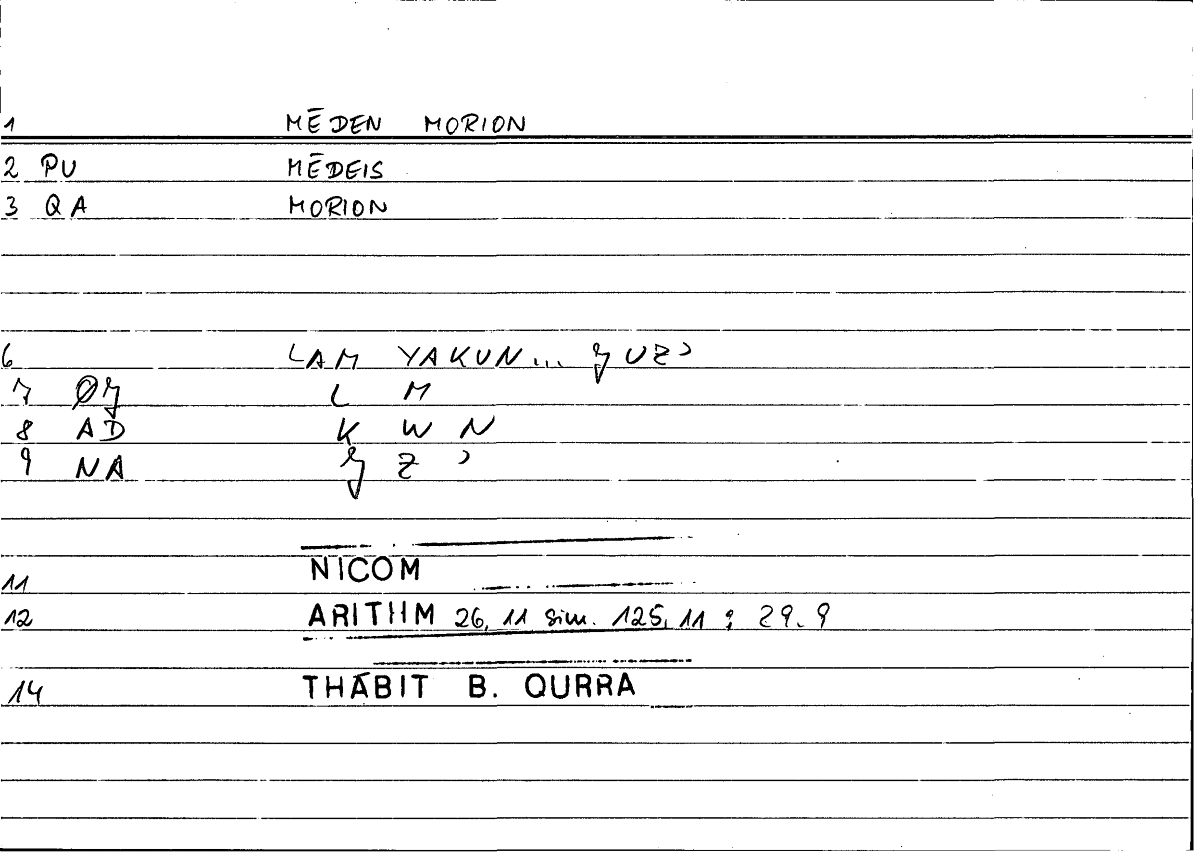 1 MĒDEN MORION
2 PU MĒDEIS
3 QA MORION
6 LAM YAKUN... JUZʾ
7 ØJ L M
8 AD K W N
9 NA J Z ʾ
11 NICOM
12 ARITHM 26, 11 sim. 125, 11 ; 29. 9
14 THĀBIT B. QURRA